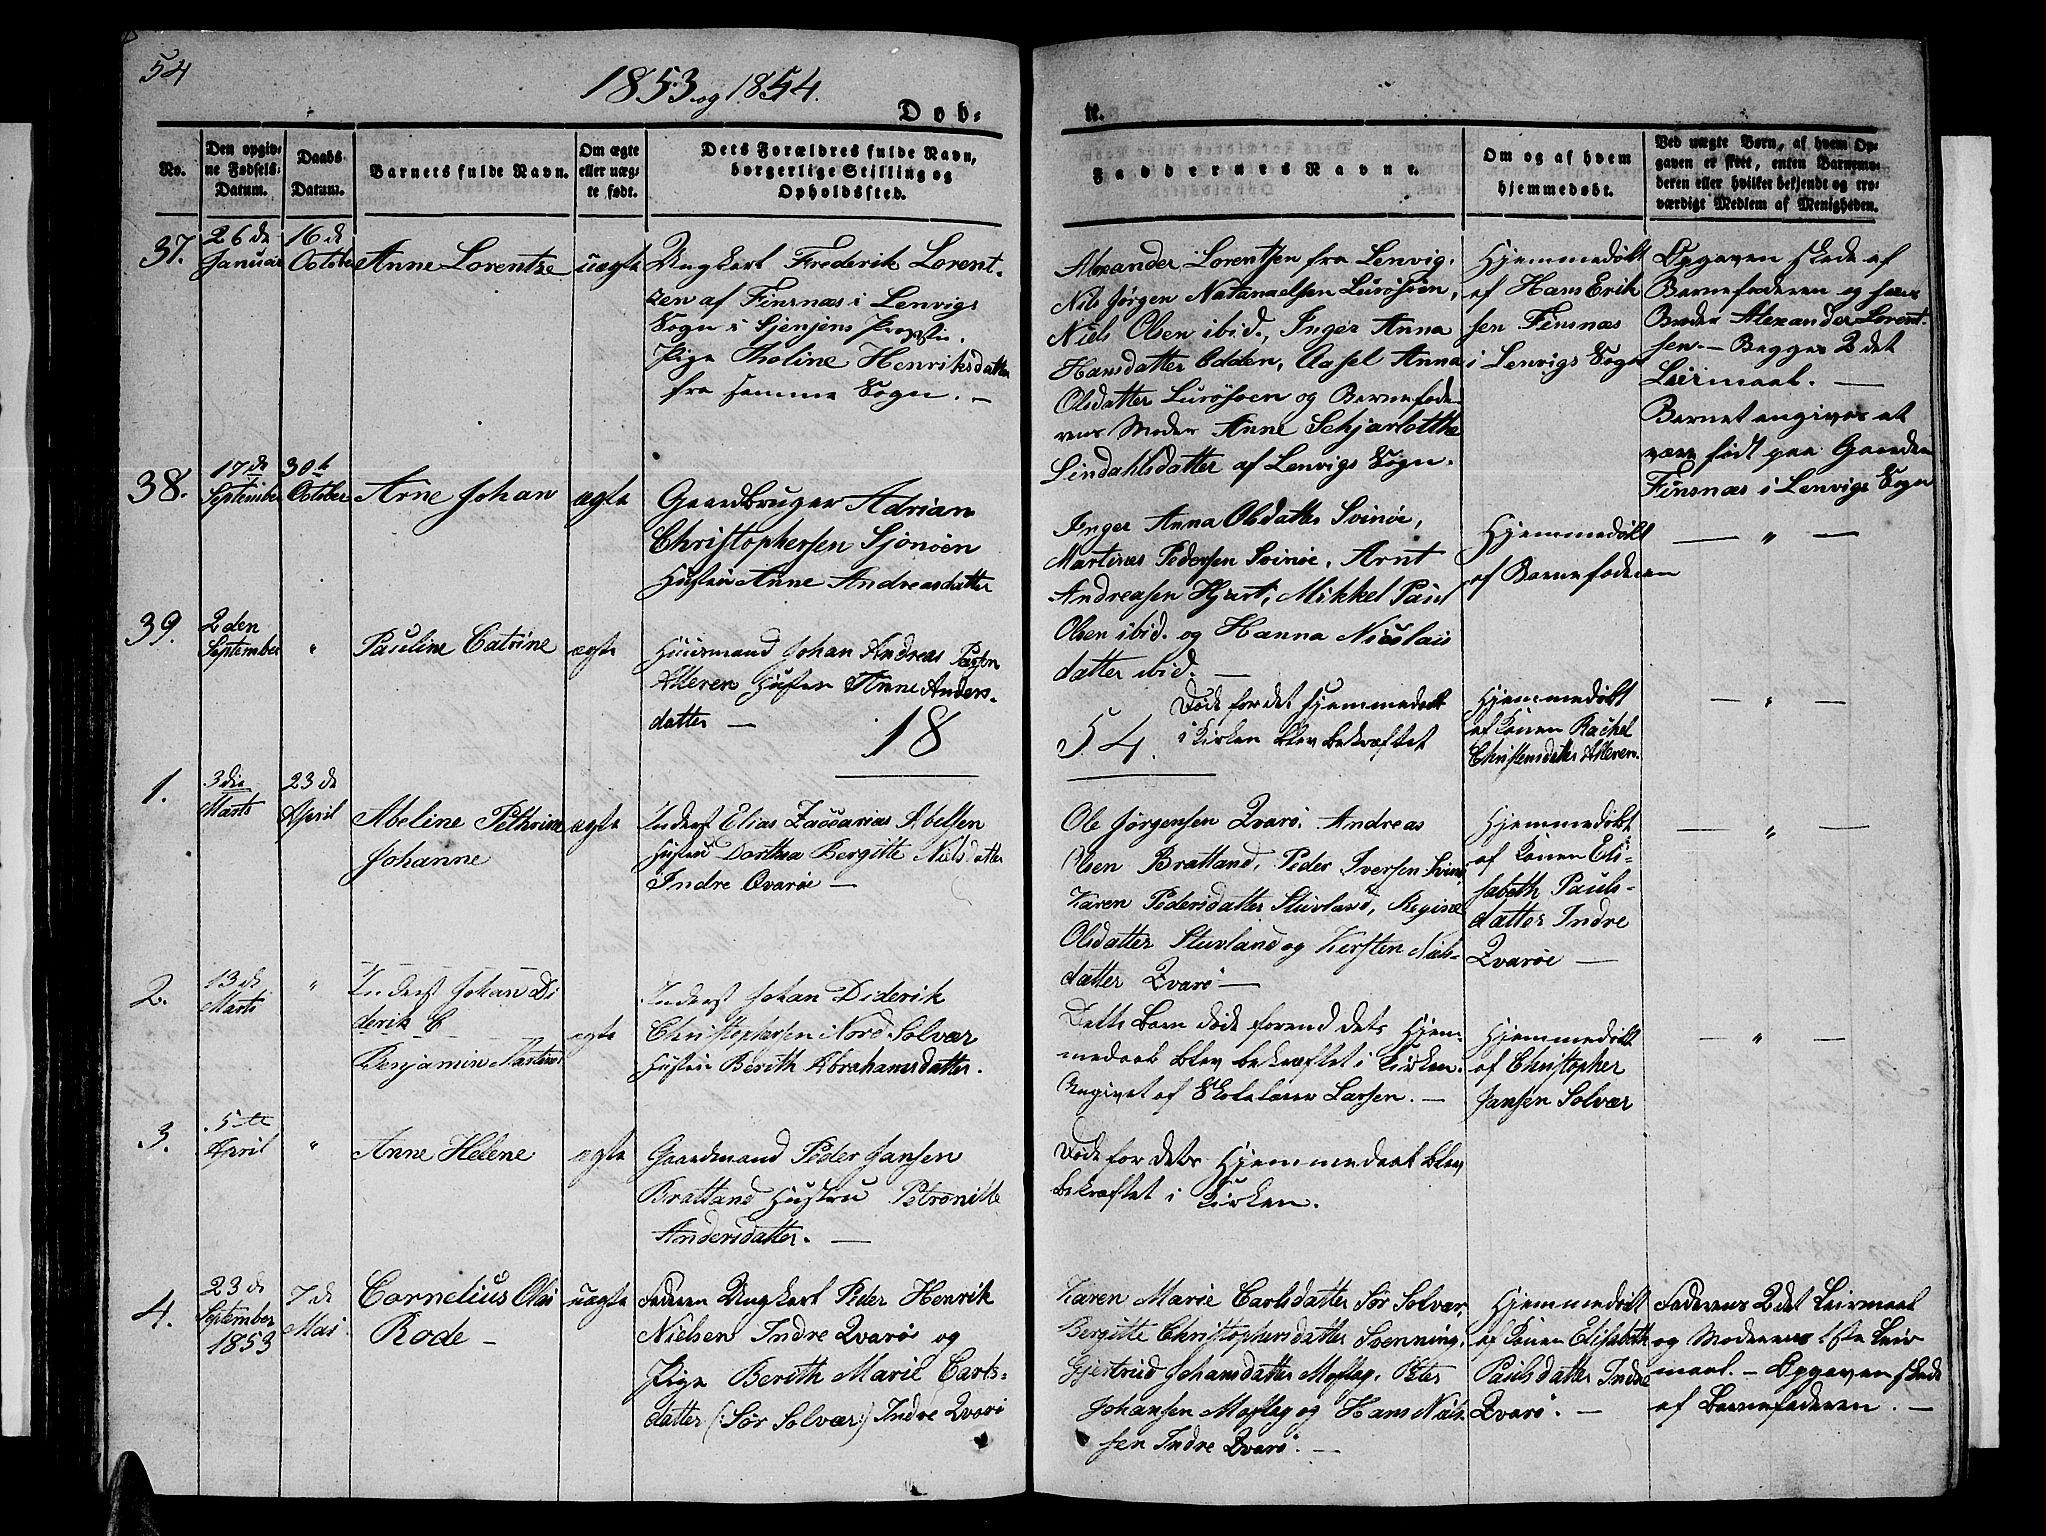 54
1853 og 1854.
Døb-
te.
No.
Den opgiv-
ne Fødsels-
Datum.
Daabs
Datum.
Barnets fulde Navn.
Om ægte
eller uæg-
te født.
Dets Forældres fulde Navn,
borgerlige Stilling og
Opholdssted.
Faddernes Navne.
Om og af hvem
hjemmedøbt.
Ved uægte Børn, af hvem Op-
gaven er skeet, enten Barnemo-
deren eller hvilket bekjendt og tro-
værdigt Medlem af Menigheden.
37.
26de
Januar
16de
October
Anne Lorentze
uægte
Ungkarl Frederik Lorent-
zen af Finsnæs i Lenvigs
Sogn i Senjens Provsti.
Pige Tholine Henriksdatter
fra samme Sogn. —
Alexander Lorentsen fra Lenvig,
Nils Jørgen Natanaelsen Lurøsøen,
Niels Olsen ibid., Inger Anna
Hansdatter Odden, Aasel Anna
Olsdatter Lurøsøen og Barnefade-
rens Moder Anne Schjarlotthe
Lindahlsdatter af Lenvigs Sogn.
Hjemmedøbt
af Hans Erik
sen Finsnæs
i Lenvigs Sogn
Opgaven skede af
Barnefaderen og hans
Broder Alexander Lorent-
sen. — Begges 2det
Leiermaal. —
Barnet angives at
være født paa Gaarden
Finsnæs i Lenvigs Sogn
38.
17de
September
30te
October
Arne Johan
ægte
Gaardbruger Adrian
Christophersen Sjonøen
Hustru Anne Andreasdatter
Inger Anna Olsdatter Svinøe,
Martines Pedersen Svinøe, Arnt
Andreasen Hjart, Mikkel Paul
Olsen ibid. og Hanna Nicolais
datter ibid. —
Hjemmedøbt
af Barnefaderen
— " —
39.
2den
September
"
Pauline Catrine
ægte
Huusmand Johan Andreas
Alteren Hustru Anne Anders-
datter —
Døde før det Hjemmedøbt
i Kirken blev bekræftet
Hjemmedøbt
af Konen Rachel
Christensdatter Alteren.
— " —
18
54.
1.
3die
Marts
23de
April
Abeline Pethrine
Johanne
ægte
Inderst Elias Zaccarias Abelsen
Hustru Dorthea Bergitte Nielsdatter
Indre Qvarøe —
Ole Jørgensen Qvarø, Andreas
Olsen Bratland, Peder Iversen Svinø,
Karen Pedersdatter Stuvland, Regine
Olsdatter Stuvland og Kersten Niels-
datter Qvarø —
Hjemmedøbt
af Konen Eli-
sabeth Pauls-
datter Indre
Qvarøe —
— " —
2.
13de
Marts
"
Inderst Johan Di
derik C
Benjamin Martinus
ægte
Inderst Johan Diderik
Christophersen i Nord Solvær
Hustru Berith Abrahamsdatter.
Dette Barn døde forend dets Hjem-
medaab blev bekræftet i Kirken.
Angivet af Skolelærer Larsen. —
Hjemmedøbt
af Christopher
Jansen Solvær
— " —
3.
5te
April
"
Anne Helene
ægte
Gaardmand Peder Jansen
Bratland Hustru Petronille
Andersdatter. —
Døde før dets Hjemmedaab blev
bekræftet i Kirken.
4.
23de
September
1853
7de
Mai
Cornelius Olai
Rode —
uægte
Faderen Ungkarl Peder Henrik
Nielsen Indre Qvarøe og
Pige Berith Marie Carls-
datter (Sør Solvær) Indre Qvarø
Karen Marie Carlsdatter Sør Solvær,
Bergitte Christophersdatter Svenning,
Gjertrud Johansdatter Moflag, Peter
Johansen Moflag og Hans Niel-
sen Indre Qvarø. —
Hjemmedøbt
af Konen Elisabeth
Paulsdatter Indre
Qvarø. —
Faderens 2det Leirmaal
og Moderens 1ste Leir
maal. — Opgaven skede
af Barnefaderen. —